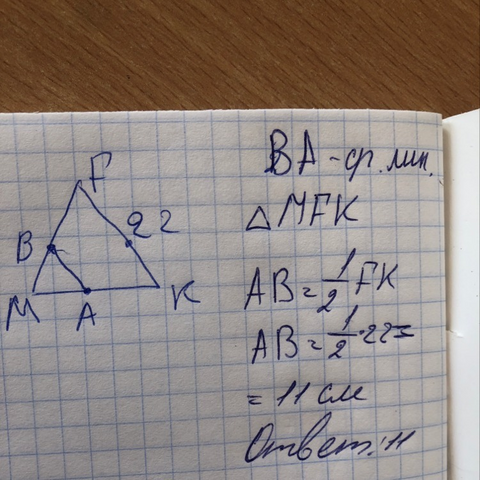 F
22
B
M
A
K
BA - ср. лин.
△ MFK
AB = 1/2 FK
AB = 1/2 · 22 =
= 11 см
Ответ: 11